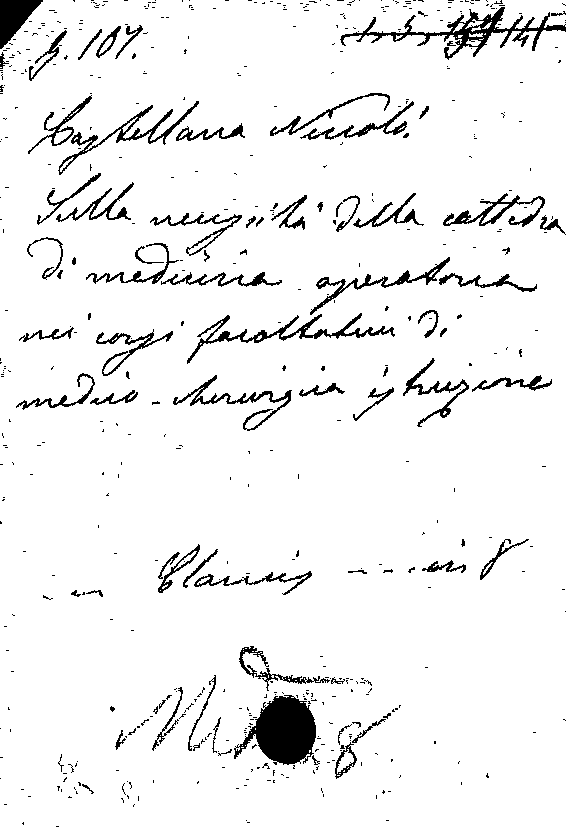 G. 107.
Castellana Niccolò
Sulla necessità della cattedra
di medicina operatoria
nei corsi facoltativi di
medico-chirurgica istruzione
in 8
8